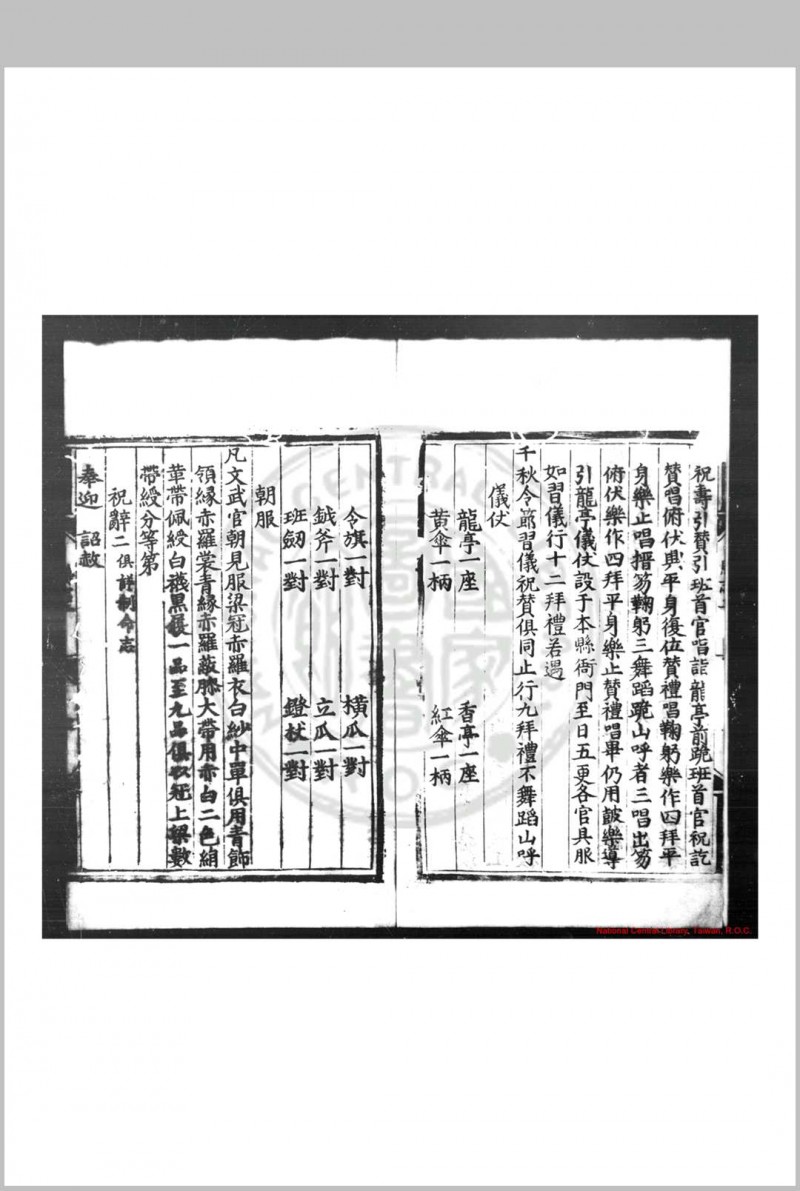 祝壽引贊引班首官詣龍亭前跪班首官祝訖
贊唱俯伏興平身復位贊禮唱鞠躬樂作四拜平
身樂止唱搢笏鞠躬三舞蹈跪山呼者三唱出笏
俯伏樂作四拜平身樂止贊禮唱畢仍用皷樂導
引龍亭儀仗設于本縣衙門至日五更各官具服
如習儀行十二拜禮若遇
千秋令節習儀祝贊俱同止行九拜禮不舞蹈山呼
儀仗
龍亭一座 香亭一座
黃傘一柄 紅傘一柄
令旗一對 橫瓜一對
鉞斧一對 立瓜一對
班劒一對 鐙杖一對
朝服
凡文武官朝見服梁冠赤羅衣白紗中單俱用青飾
領緣赤羅裳青緣赤羅蔽膝大帶用赤白二色絹
革帶佩綬白襪黑履一品至九品俱以冠上梁數
帶綬分等第
祝辭二俱謹制令志
奉迎 詔赦
National Central Library, Taiwan, R.O.C.